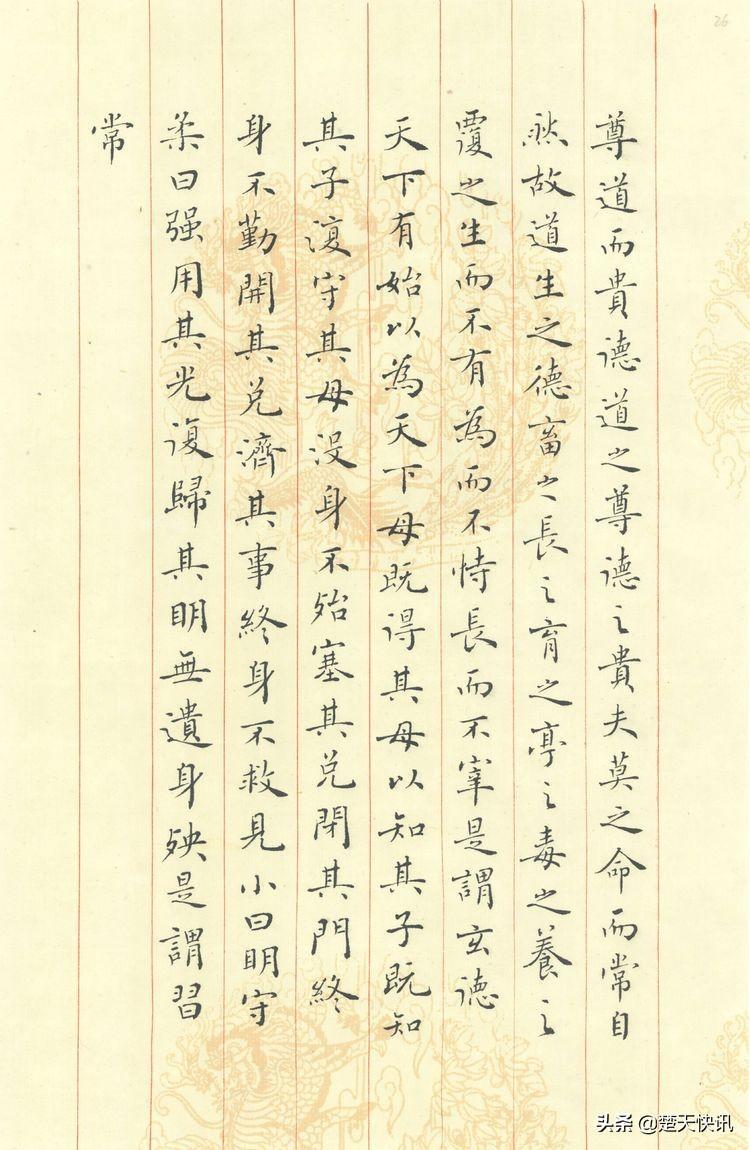 26
尊道而貴德道之尊德之貴夫莫之命而常自
然故道生之德畜之長之育之亭之毒之養之
覆之生而不有為而不恃長而不宰是謂玄德
天下有始以為天下母既得其母以知其子既知
其子復守其母没身不殆塞其兑閉其門終
身不勤開其兑濟其事終身不救見小曰明守
柔曰强用其光復歸其明無遺身殃是謂習
常
头条 @楚天快讯